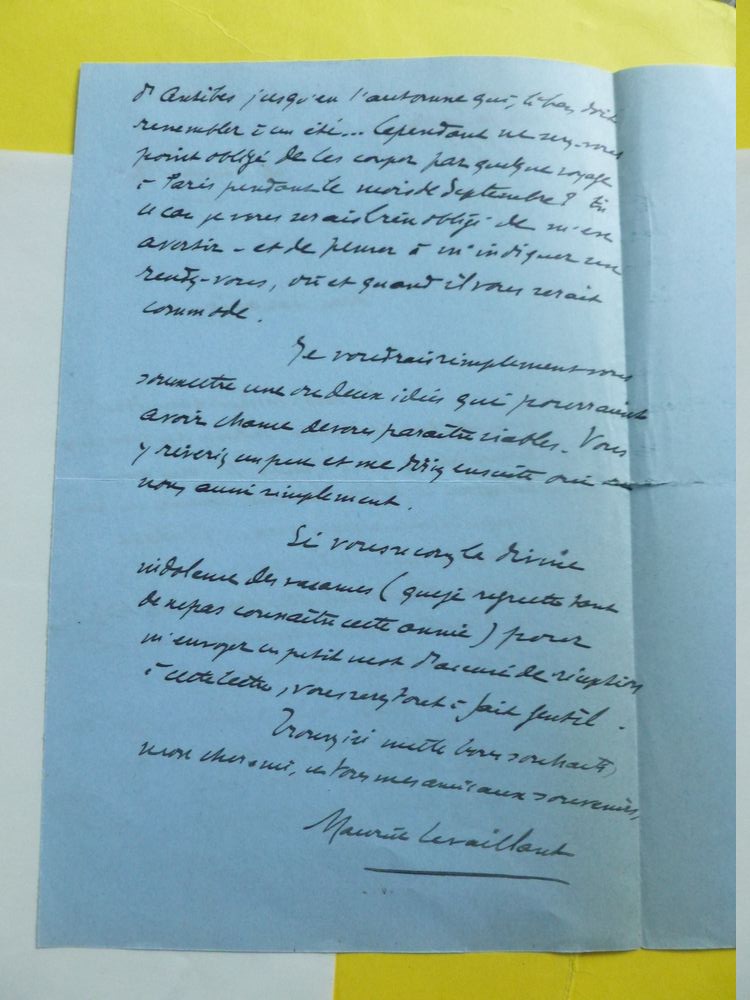 d'Antibes jusqu'en l'automne qui, là-bas, doit
ressembler à un été... Cependant ne serez-vous
point obligé de les couper par quelque voyage
à Paris pendant le mois de Septembre? En
ce cas je vous serais bien obligé de m'en
avertir - et de penser à m'indiquer un
rendez-vous, où et quand il vous serait
commode.
Je voudrais simplement vous
soumettre une ou deux idées qui pourraient
avoir chance de vous paraître viables. Vous
y rêverez un peu et me direz ensuite oui ou
non, aussi simplement.
Si vous secouez la divine
indolence des vacances (que je regrette tant
de ne pas connaître cette année) pour
m'envoyer un petit mot d'accusé de réception
à cette lettre, vous serez tout à fait gentil.
Trouvez ici mille bons souhaits,
mon cher ami, et tous mes amicaux souvenirs,
Maurice Levaillant